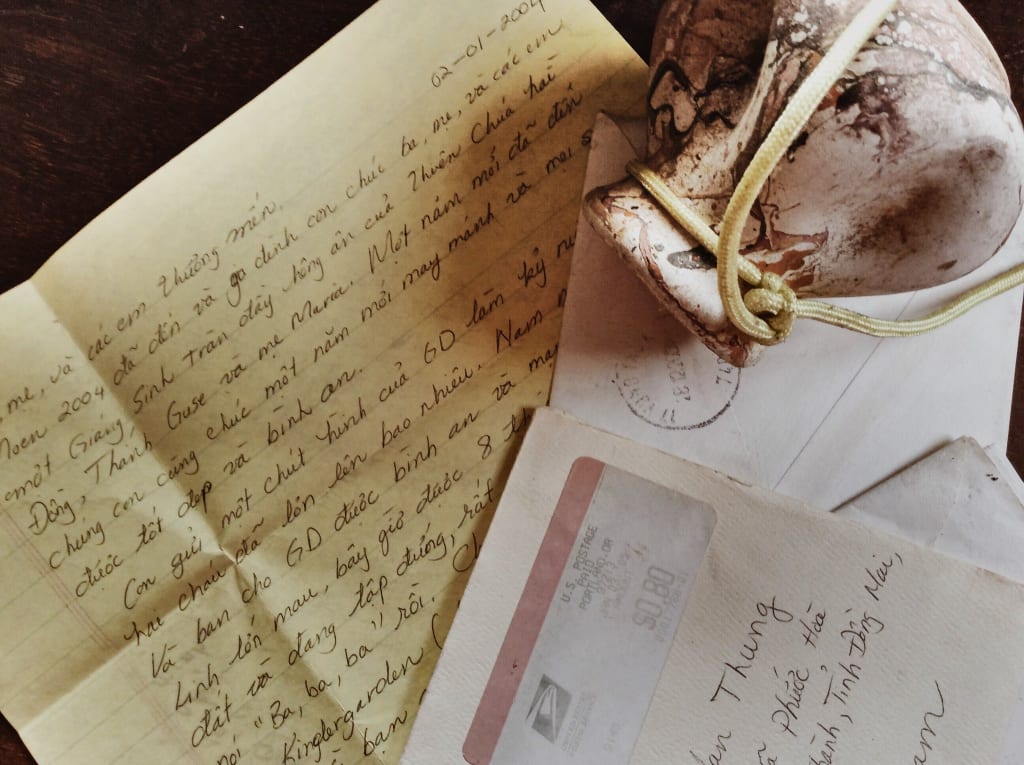 02-01-2004
mẹ, và các em thương mến.
Noen 2004 đã đến và ga đình con chúc ba, mẹ, và các em
một Giáng Sinh tràn đầy hồng ân của Thiên Chúa hài
Đồng, Thánh Guse và mẹ Maria. Một năm mới đã đến
chúng con cũng chúc một năm mới may mánh và mọi s
được tốt đẹp và bình an.
Con gửi một chút hình của GD làm kỷ
hai cháu đã lớn lên bao nhiêu. Nam
Và ban cho GD được bình an và
Linh lớn mau, bây giờ được 8
đất và đang tập đướng, rất
nói "Ba, ba, ba" rồi.
Kindergarden (
bạn
U.S. POSTAGE
PAID
PORTLAND, OR
$0.80
Thung
Phước Hoà
Tỉnh Đồng Nai,